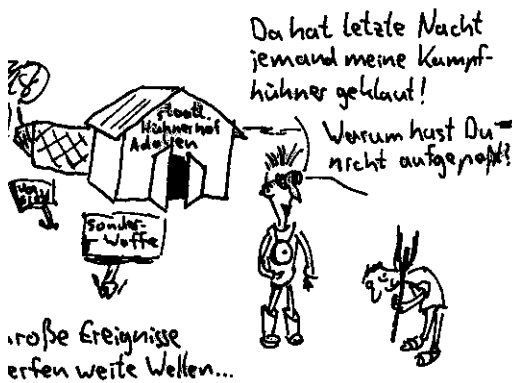 Da hat letzte Nacht
jemand meine Kampf-
hühner geklaut!
Warum hast Du
nicht aufgepaßt?
staatl.
Hühnerhof
Adofen
Sonder-
Waffe
roße Ereignisse
erfen weite Wellen...